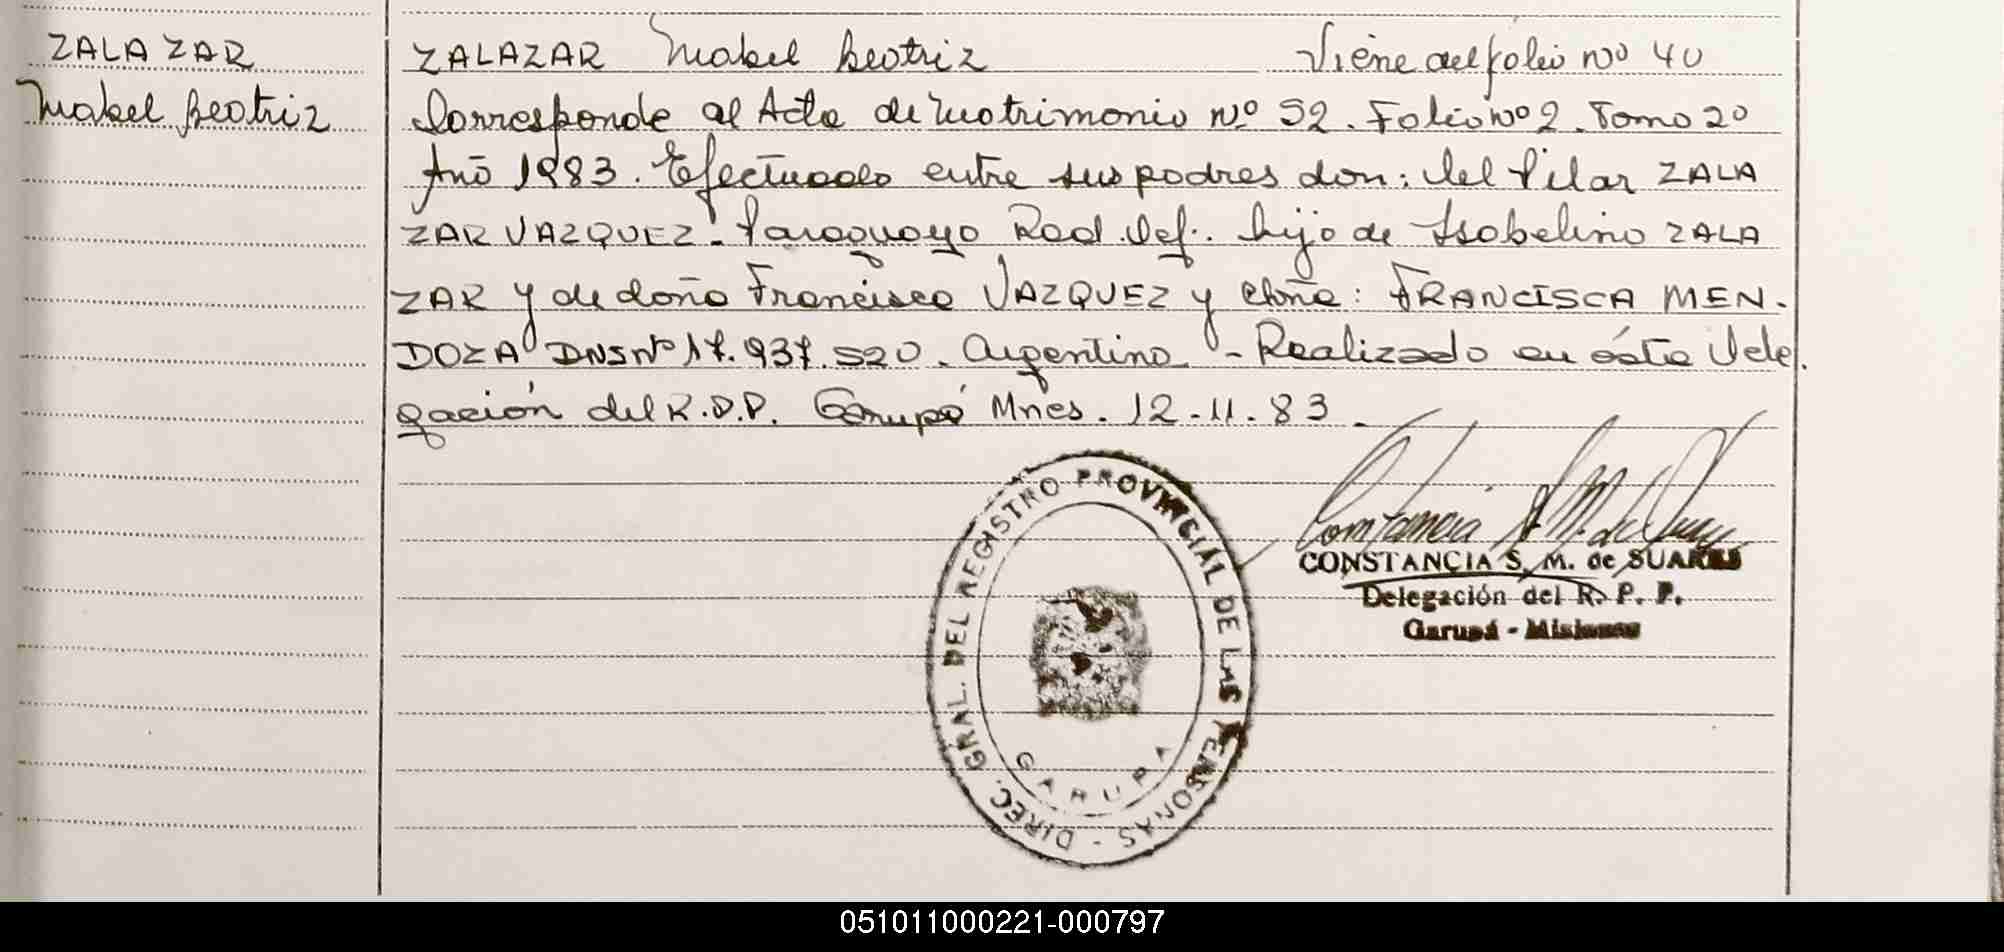 ZALAZAR
Mabel Beatriz
ZALAZAR Mabel Beatriz Viene del folio nº 40
Corresponde al Acta de Matrimonio nº 52. Folio nº 2. Tomo 2º
Año 1983. Efectuado entre sus padres don: Del Pilar ZALA
ZAR VAZQUEZ. Paraguayo Rad. Def. hijo de Isabelino ZALA
ZAR y de doña Francisca VAZQUEZ y doña: FRANCISCA MEN-
DOZA DNI nº 17.937.520. Argentina - Realizado en ésta Dele
gación del R.P.P. Garupá Mnes. 12-11-83.
DIREC. GRAL. DEL REGISTRO PROVINCIAL DE LAS PERSONAS -
GARUPA
Constancia S. M. de Suares
CONSTANCIA S. M. de SUARES
Delegación del R. P. P.
Garupá - Misiones
051011000221-000797